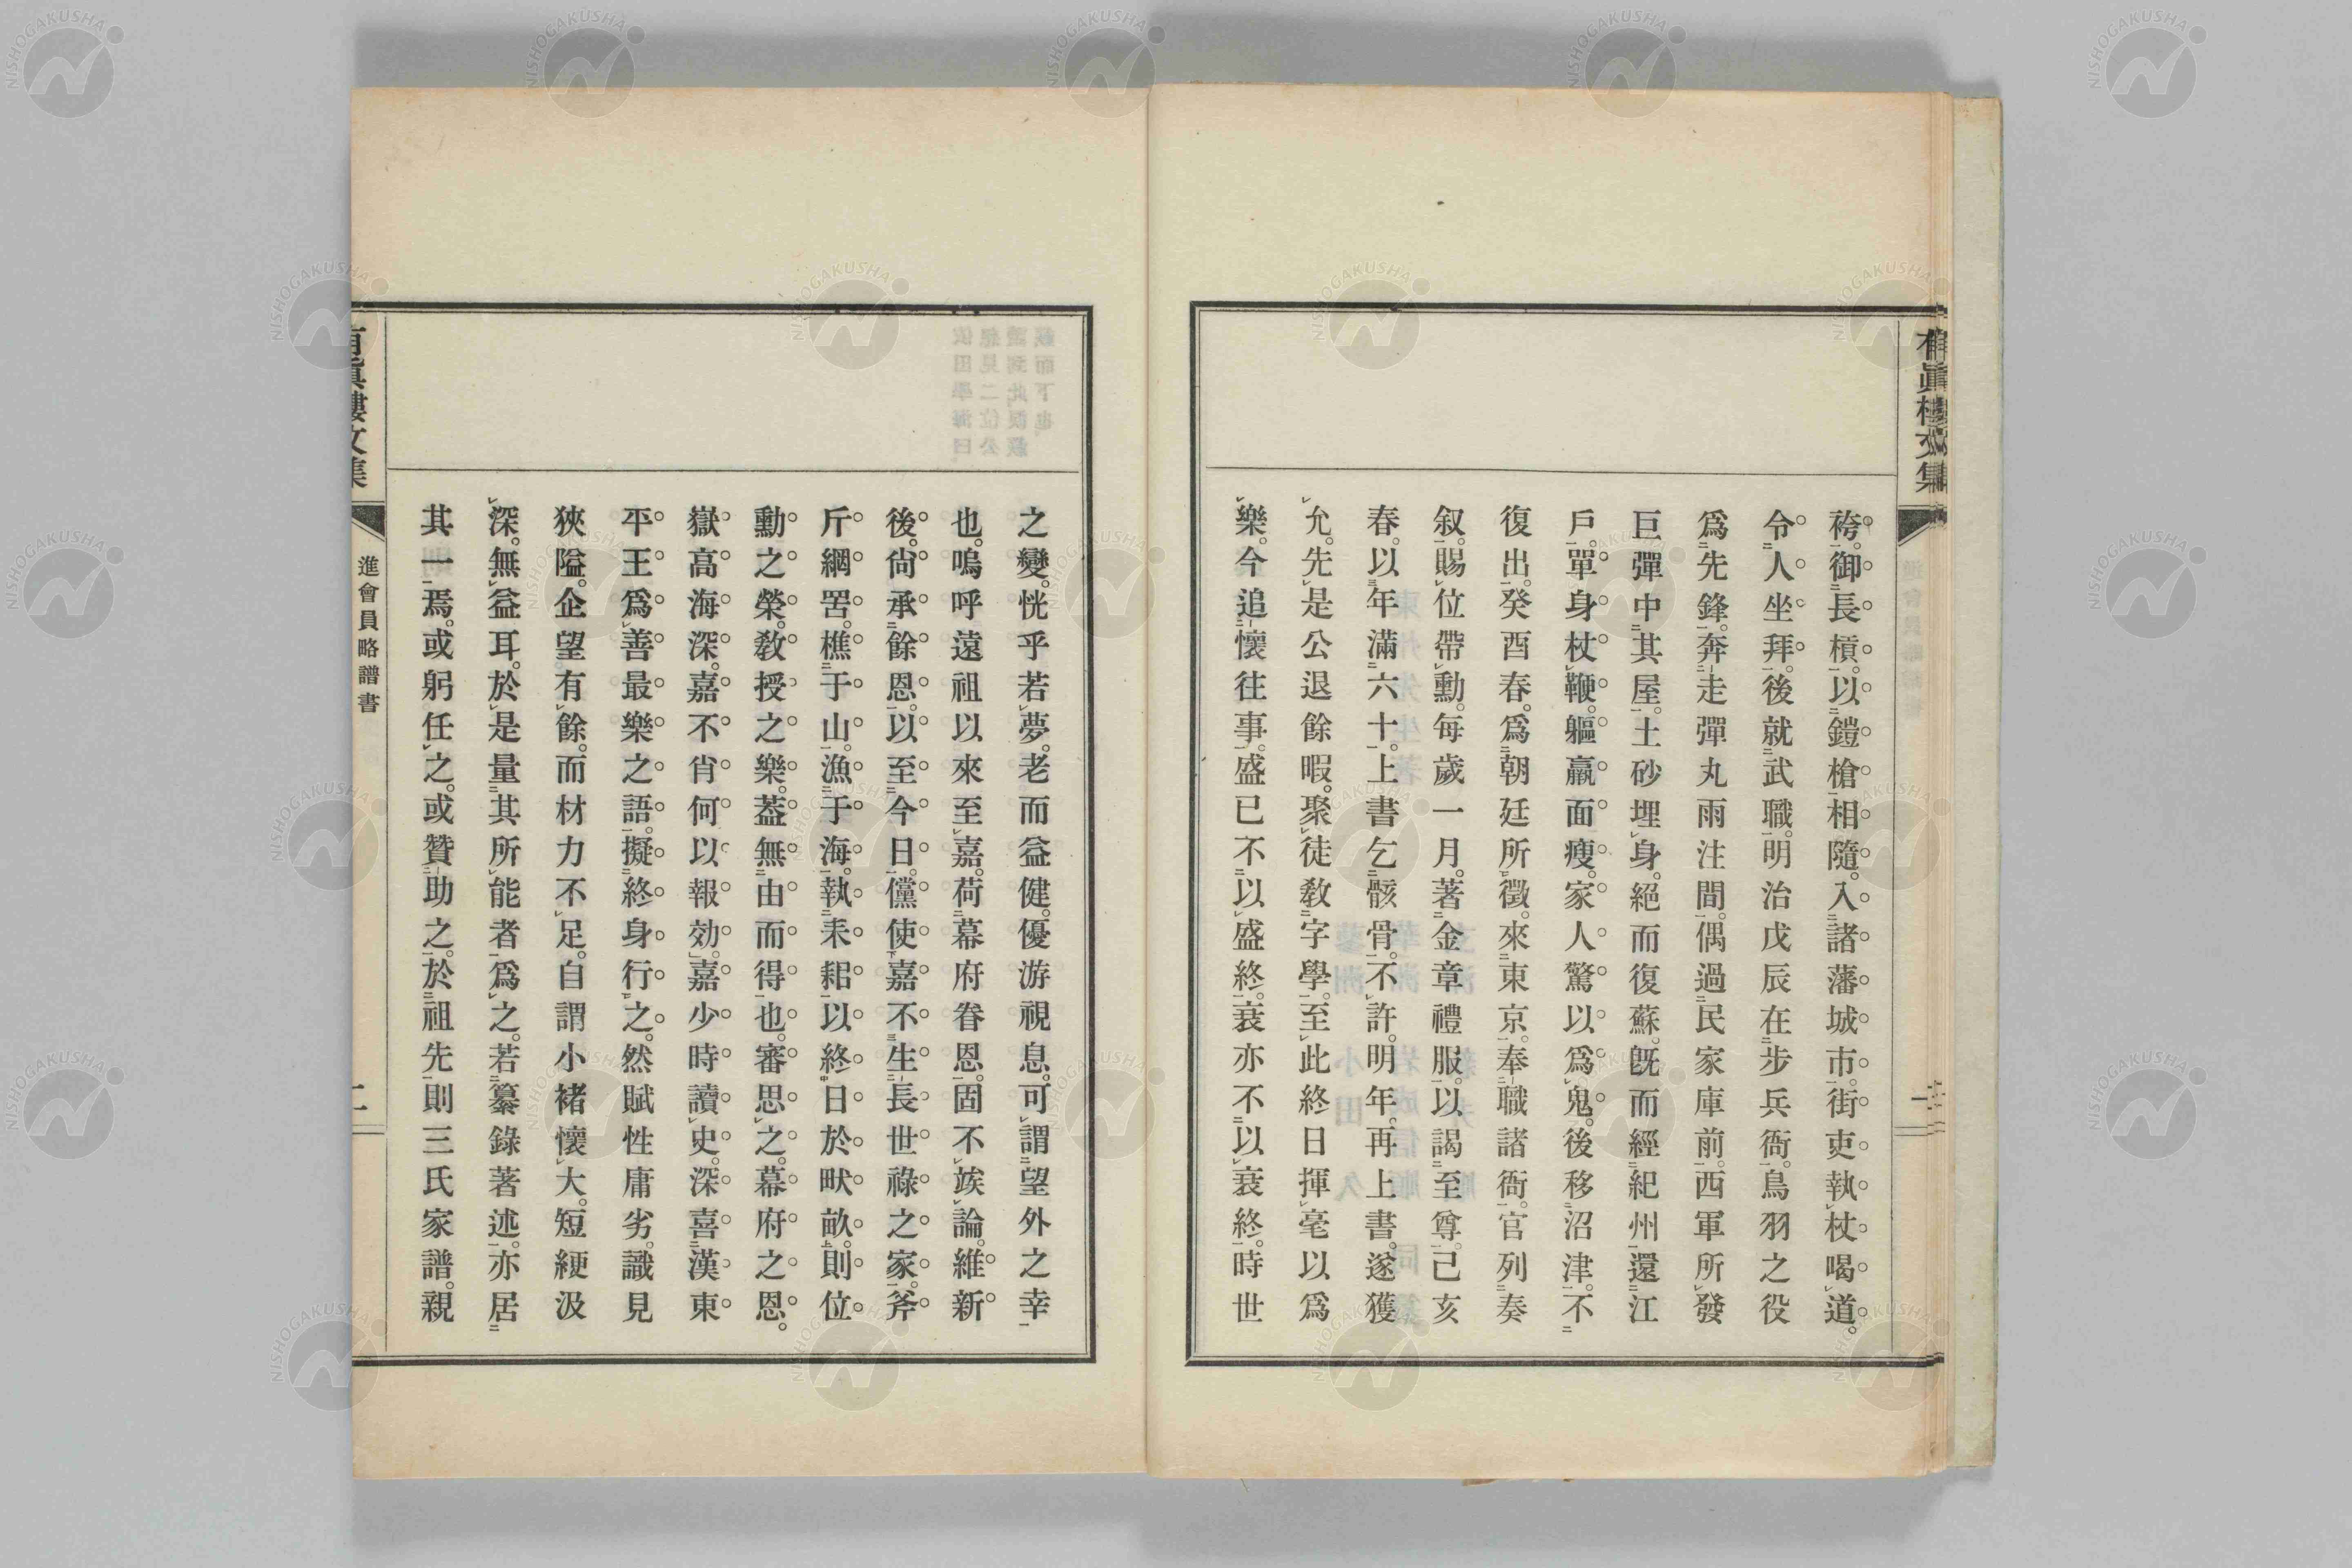 有眞樓文集
袴。御長槓。以鎧槍相隨。入諸藩城市。街吏執杖喝道。
令人坐拜。後就武職。明治戊辰在步兵衙。鳥羽之役
爲先鋒。奔走彈丸雨注間。偶過民家庫前。西軍所發
巨彈中其屋。土砂埋身。絕而復蘇。旣而經紀州還江
戶。單身杖鞭。軀羸面瘦。家人驚以爲鬼。後移沼津。不
復出。癸酉春。爲朝廷所徵。來東京。奉職諸衙。官列奏
叙。賜位帶勳。每歲一月。著金章禮服。以謁至尊。己亥
春。以年滿六十。上書乞骸骨。不許。明年。再上書。遂獲
允。先是公退餘暇。聚徒敎字學。至此終日揮毫以爲
樂。今追懷往事。盛已不以盛終。衰亦不以衰終。時世
之變。恍乎若夢。老而益健。優游視息。可謂望外之幸
也。嗚呼遠祖以來至嘉。荷幕府眷恩。固不竢論。維新
後。尙承餘恩。以至今日。儻使嘉不生長世祿之家。斧
斤網罟。樵于山。漁于海。執耒耜以終日於畎畝。則位
勳之榮。敎授之樂。葢無由而得也。審思之。幕府之恩。
嶽高海深。嘉不肖何以報効。嘉少時讀史。深喜漢東
平王爲善最樂之語。擬終身行之。然賦性庸劣。識見
狹隘。企望有餘。而材力不足。自謂小褚懷大。短綆汲
深。無益耳。於是量其所能者爲之。若纂錄著述。亦居
其一焉。或躬任之。或贊助之。於祖先則三氏家譜。親
有眞樓文集
進會員略譜書
二